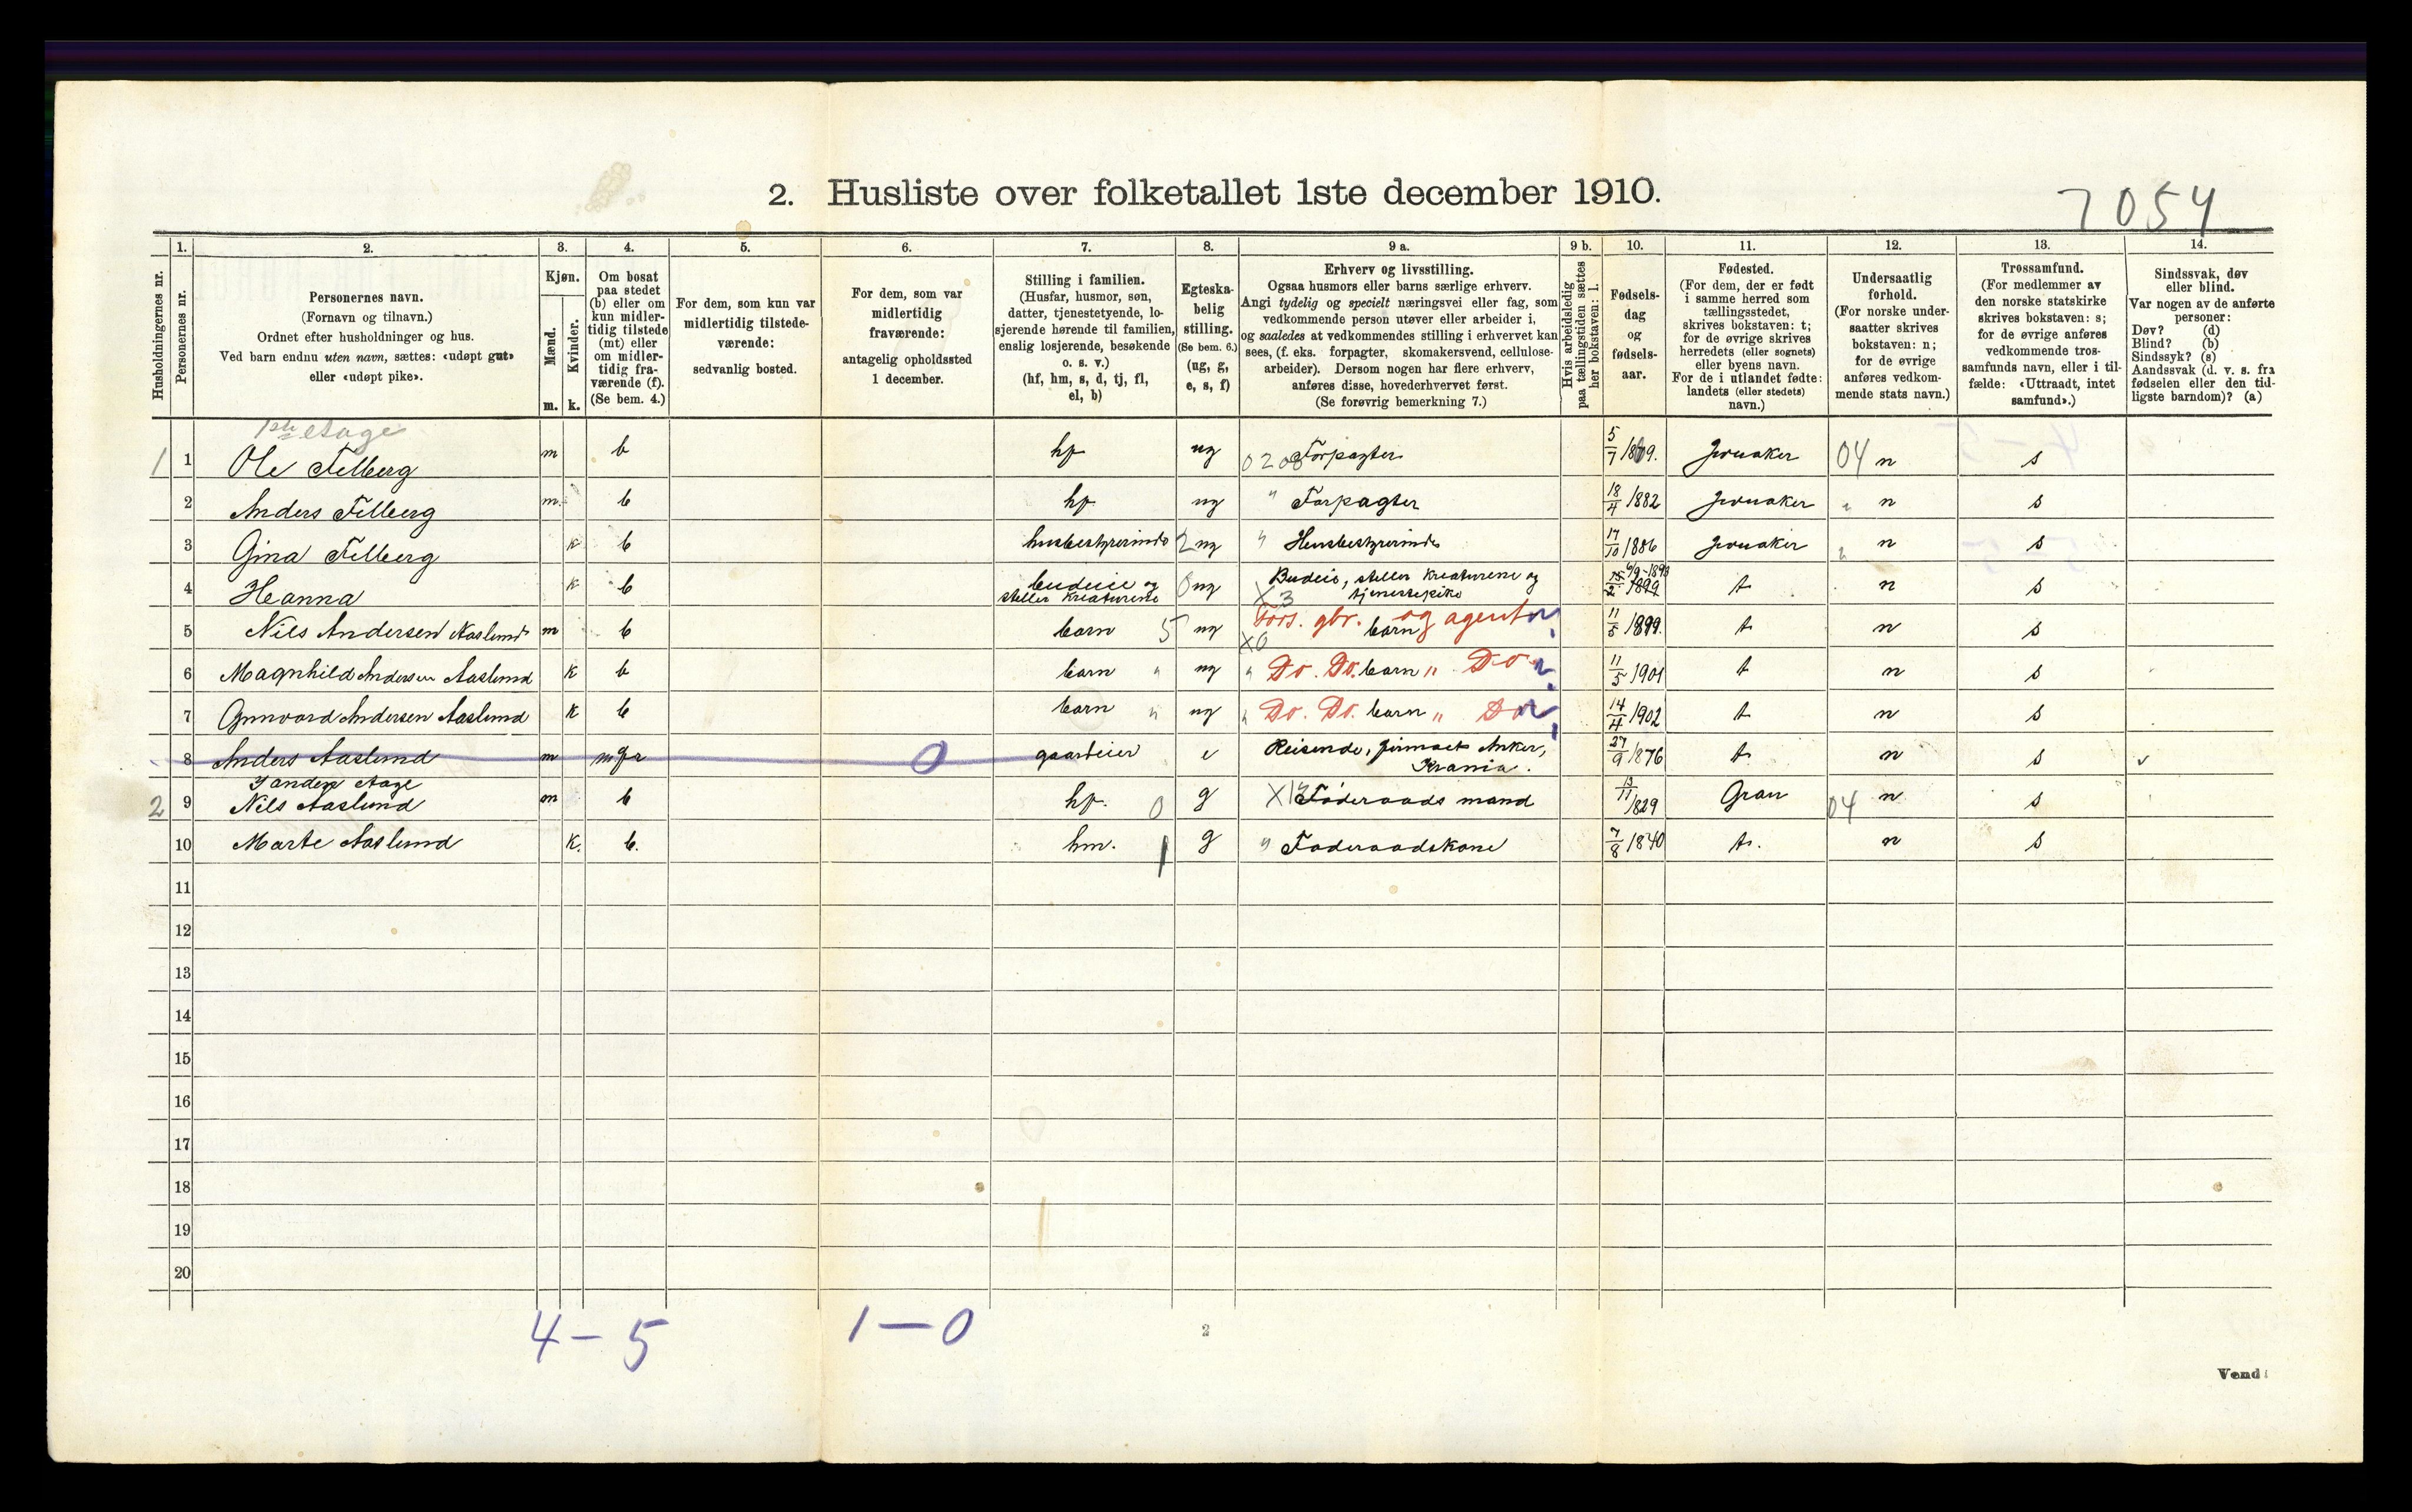 2. Husliste over folketallet 1ste december 1910.
7054
Husholdningernes nr.
1. Personernes nr.
2. Personernes navn.
(Fornavn og tilnavn.)
Ordnet efter husholdninger og hus.
Ved barn endnu uten navn, sættes: «udøpt gut»
eller «udøpt pike».
3. Kjøn.
Mænd. m.
Kvinder. k.
4. Om bosat
paa stedet
(b) eller om
kun midler-
tidig tilstede
(mt) eller
om midler-
tidig fra-
værende (f).
(Se bem. 4.)
5. For dem, som kun var
midlertidig tilstede-
værende:
sedvanlig bosted.
6. For dem, som var
midlertidig
fraværende:
antagelig opholdssted
1 december.
7. Stilling i familien.
(Husfar, husmor, søn,
datter, tjenestetyende, lo-
sjerende hørende til familien,
enslig losjerende, besøkende
o. s. v.)
(hf, hm, s, d, tj, fl,
el, b)
8. Egteska-
belig
stilling.
(Se bem. 6.)
(ug, g,
e, s, f)
9 a. Erhverv og livsstilling.
Ogsaa husmors eller barns særlige erhverv.
Angi tydelig og specielt næringsvei eller fag, som
vedkommende person utøver eller arbeider i,
og saaledes at vedkommendes stilling i erhvervet kan
sees, (f. eks. forpagter, skomakersvend, cellulose-
arbeider). Dersom nogen har flere erhverv,
anføres disse, hovederhvervet først.
(Se forøvrig bemerkning 7.)
9 b. Hvis arbeidsledig
paa tællingstiden sættes
her bokstaven: l.
10. Fødsels-
dag
og
fødsels-
aar.
11. Fødested.
(For dem, der er født
i samme herred som
tællingsstedet,
skrives bokstaven: t;
for de øvrige skrives
herredets (eller sognets)
eller byens navn.
For de i utlandet fødte:
landets (eller stedets)
navn.)
12. Undersaatlig
forhold.
(For norske under-
saatter skrives
bokstaven: n;
for de øvrige
anføres vedkom-
mende stats navn.)
13. Trossamfund.
(For medlemmer av
den norske statskirke
skrives bokstaven: s;
for de øvrige anføres
vedkommende tros-
samfunds navn, eller i til-
fælde: «Uttraadt, intet
samfund».)
14. Sindssvak, døv
eller blind.
Var nogen av de anførte
personer:
Døv? (d)
Blind? (b)
Sindssyk? (s)
Aandssvak (d. v. s. fra
fødselen eller den tid-
ligste barndom)? (a)
1ste etage
1 1 Ole Felberg m b hf ug 0208 Forpagter 5/7 18 9. Jevnaker 04 n s
2 Anders Felberg m b hf ug " Forpagter 18/4 1882 Jevnaker " n s
3 Gina Felberg k b husbestyrerinde 2 ug " Husbestyrerinde 17/10 1886 Jevnaker " n s
4 Hanna k b budeie og steller kreaturene 0 ug X3 Budeie, steller kreaturene og tjenestepike 6/9-1893 15/2 1899 t n s
5 Nils Andersen Aaslund m b barn 5 ug X0 Fors. gbr. barn og agent 11/5 1899. t n s
6 Magnhild Andersen Aaslund k b barn " ug " Do. Do. barn " Do 11/5 1901 t n s
7 Gunvord Andersen Aaslund k b barn " ug " Do. Do. barn " Do 14/4 1902 t n s
8 Anders Aaslund m 0 gaardeier e Reisende, firmaet Anker, Krania. 27/9 1876 t n s
2 anden etage
9 Nils Aaslund m b hf. 0 g X13 Föderaads mand 13/11 1829 Gran 04 n s
10 Marte Aaslund k. b. hm. 1 g " Föderaadskone 7/8 1840 t. n s
11
12
13
14
15
16
17
18
19
20
4 - 5 1 - 0
2
Vend